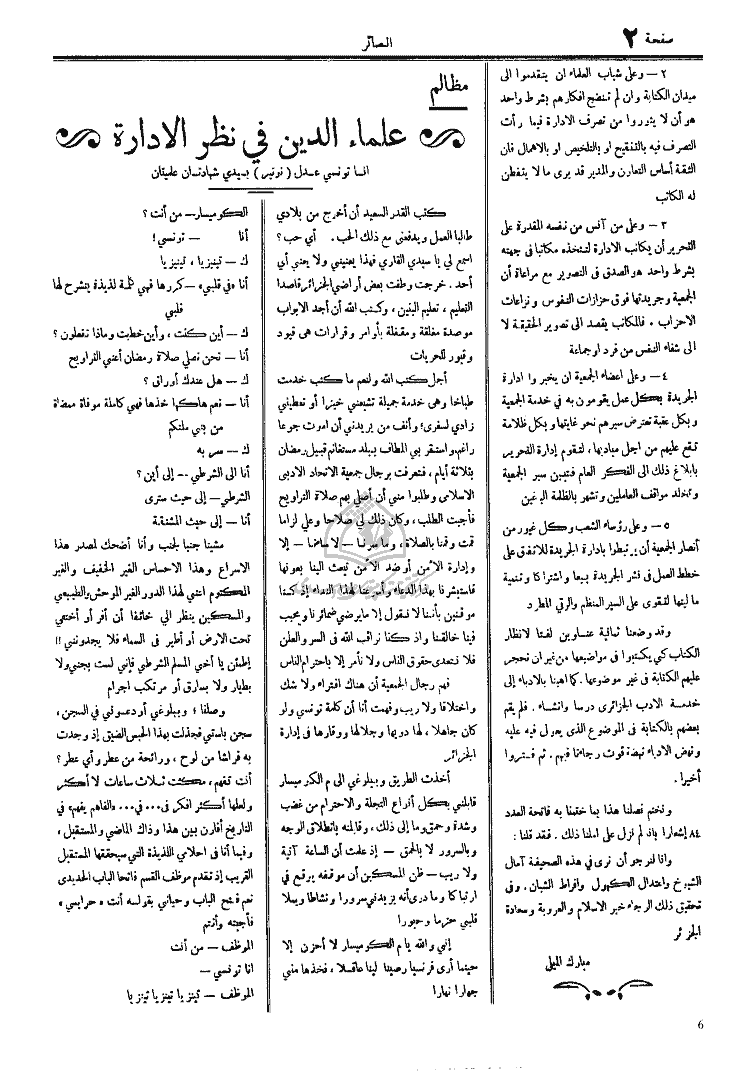 صفحة ٢
البصائر
٢ — وعلى شباب العلماء ان يتقدموا الى
ميدان الكتابة وان لم تنضج افكارهم بشرط واحد
هو أن لا يثوروا من تصرف الادارة فيما رأت
التصرف فيه بالتنقيح او بالتلخيص او بالاهمال فان
الثقة أساس التعاون والمدير قد يرى ما لا يتفطن
له الكاتب
٣ — وعلى من آنس من نفسه المقدرة على
التحرير أن يكاتب الادارة لتتخذه مكاتبا في جهته
بشرط واحد هو الصدق في التصوير مع مراعاة أن
الجمعية وجريدتها فوق حزازات النفوس و نزاعات
الاحزاب . فالمكاتب يقصد الى تصوير الحقيقة لا
الى شفاء النفس من فرد او جماعة
٤ — وعلى اعضاء الجمعية ان يخبروا ادارة
الجريدة بكل عمل يقومون به في خدمة الجمعية
وبكل عقبة تعترض سيرهم نحو غايتها وبكل ظلامة
تقع عليهم من اجل مباديها ، لتقوم إدارة التحرير
بابلاغ ذلك الى الفكر العام فتبين سير الجمعية
وتخلد مواقف العاملين وتشهر بالظلمة الباغين
٥ — وعلى رؤساء الشعب وكل غيور من
أنصار الجمعية أن يرتبطوا بادارة الجريدة للاتفق على
خطط العمل فى نشر الجريدة بيعا واشتراكا وتنمية
ماليتها لتقوى على السير المنظم والرقي المطرد
وقد وضعنا ثمانية عناوين لفتا لانظار
الكتاب كي يكتبوا في مواضيعها من غير ان نحجر
عليهم الكتابة في غير موضوعها. كما اهبنا بالادباء إلى
خدمة الادب الجزائرى درسا وانشاء . فلم يقم
بعضهم بالكتابة في الموضوع الذى يعول فيه عليه
ونهض الادباء نهضة قوت رجاءنا فيهم . ثم فتروا
أخيرا .
ونختم فصلنا هذا بما ختمنا به فاتحة العدد
٨٤ إشعارا باذ لم نزل على املنا ذلك . فقد قلنا :
وانا لنرجو أن نرى في هذه الصحيفة آمال
الشيوخ واعتدال الكهول وافراط الشبان . وفى
تحقيق ذلك الرجاء خير الاسلام والعروبة وسعادة
الجزائر
مبارك الميلى
مظالم
علماء الدين في نظر الادارة
انا تونسي عدل ( نوتير ) بيدي شهادتان علميتان
كتب القدر السعيد أن أخرج من بلادي
طالبا العمل ويدفعنى مع ذلك الحب . أي حب؟
اسمع لي يا سيدي القاري فهذا يعنينى ولا يعني أي
أحد . خرجت وطفت بعض أراضي الجزائر قاصدا
التعليم ، تعليم البنين ، وكتب الله أن أجد الابواب
موصدة مغلقة ومقفلة بأوامر وقرارات هى قيود
وقبور للحريات
أجل كتب الله ولنعم ما كتب خدمت
طباخا وهى خدمة جميلة تشبعنى خبزا أو تعطينى
زادي لسفرى؛ وأنف من يريدنى أن اموت جوعا
راغم، واستقر بي المطاف ببلد مستغانم قبيل رمضان
بثلاثة أيام، فتعرفت برجال جمعية الاتحاد الادبى
الاسلامى وطلبوا مني أن أصلي بهم صلاة التراويح
فأجبت الطلب ، وكان ذلك لي صلاحا وعلي لزاما
قمت وقمنا بالصلاة ، وما سرنا — لا ساءنا — إلا
وإدارة الأمن أو ضد الأمن تبعث الينا بعونها
فاستبشرنا بهذا الدعاء وأمرعنا لهذا النداء إذ كنا
موقنين بأننا لا نقول إلا ما يرضي ضمائرنا وما يحب
فينا خالقنا واذ كنا نراقب الله فى السر والعلن
فلا نتعدى حقوق الناس ولا نأمر إلا باحترام الناس
فهم رجال الجمعية أن هناك افتراء ولا شك
واختلاقا ولا ريب وفهمت أنا أن كلمة تونسي ولو
كان جاهلا ، لها دربها وجلالها ووقارها في إدارة
الجزائر
أخذت الطريق وببلوغي الى م الكوميسار
قابلني بكل أنواع التجلة والاحترام من غضب
وشدة وحمق وما إلى ذلك ، وقابلته بانطلاق الوجه
وبالسرور لا بالحمق — إذ علمت أن الساعة آتية
ولا ريب — ظن المسكين أن موقفه يوقع في
ارتباكا وما درى أنه يزيدني سرورا ونشاطا ويملأ
قلبي حزما وحبورا
إني والله يا م الكوميسار لا أحزن إلا
حينما أرى فرنسيا رصينا لينا عاقلا ، فخذها مني
جهارا نهارا
الكوميسار— من أنت ؟
أنا — تونسي!
ك — تينيزيا ، تينيزيا
أنا «في قلبي» — كررها فهي كلمة لذيذة ينشرح لها
قلبي
ك — أين كنت ، وأين خطبت وماذا تفعلون ؟
أنا — نحن نصلي صلاة رمضان أعني التراويح
ك — هل عندك أوراق ؟
أنا — نعم هاكها خذها فهي كاملة موفاة ممضاة
من بني ملتكم
ك — سر به
أنا الى الشرطي -- إلى أين ؟
الشرطي — إلى حيث سترى
أنا — إلى حيث المشنقة
مشينا جنبا لجنب وأنا أضحك لمصدر هذا
الاسراع وهذا الاحساس الغير الخفيف والغير
المكتوم انتهى لهذا الدور الغير الموحش والطبيعي
والمسكين ينظر الي خائفا أن أفر أو أختفي
تحت الارض أو أطير فى السماء فلا يجدونني !!
إطمئن يا أخي المسلم الشرطي فاني لست بجني ولا
بطيار ولا بسارق أو مرتكب اجرام
وصلنا ؛ وببلوغي أودعوني في السجن ،
سجن باستي فحبذت بهذا الحبس الضيق إذ وجدت
به فراشا من لوح ، ورائحة من عطر وأي عطر ؟
أنت تفهم ، مكثت ثلاث ساعات لا أكثر
ولعلها أكثر افكر في .. في .. والفاهم يفهم ، في
التاريخ أقارن بين هذا وذاك الماضي والمستقبل ،
وفيما أنا فى احلامي اللذيذة التي سيحققها المستقبل
القريب إذ تقدم موظف القسم فاتحا الباب الحديدى
نعم فتح الباب وحياني بقوله أنت « حرايسي »
فأجبته وأنتم
الموظف — من أنت
انا تونسي —
الموظف — تينزيا تينزيا تينزيا
6